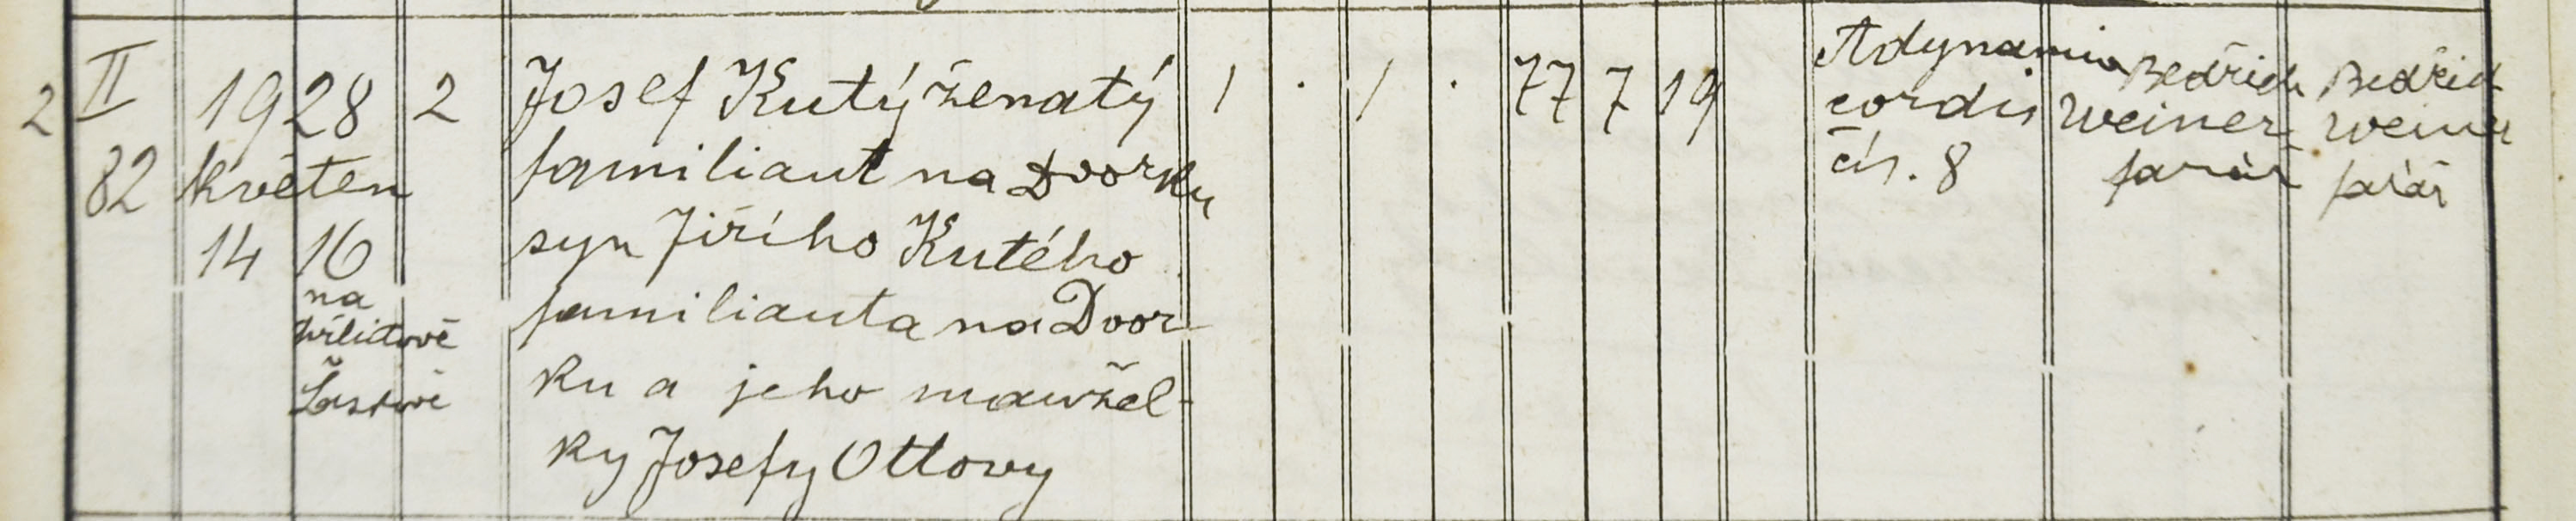 2 II 1928 2 Josef Kutý ženatý 1 · 1 · 77 7 19 Adynamia Bedřich Bedřich
82 květen familiant na Dvorku cordis Weiner Weiner
14 16 syn Jiřího Kutého čís. 8 farář farář
na familianta na Dvor-
ku a jeho manžel-
ky Josefy Ottovy